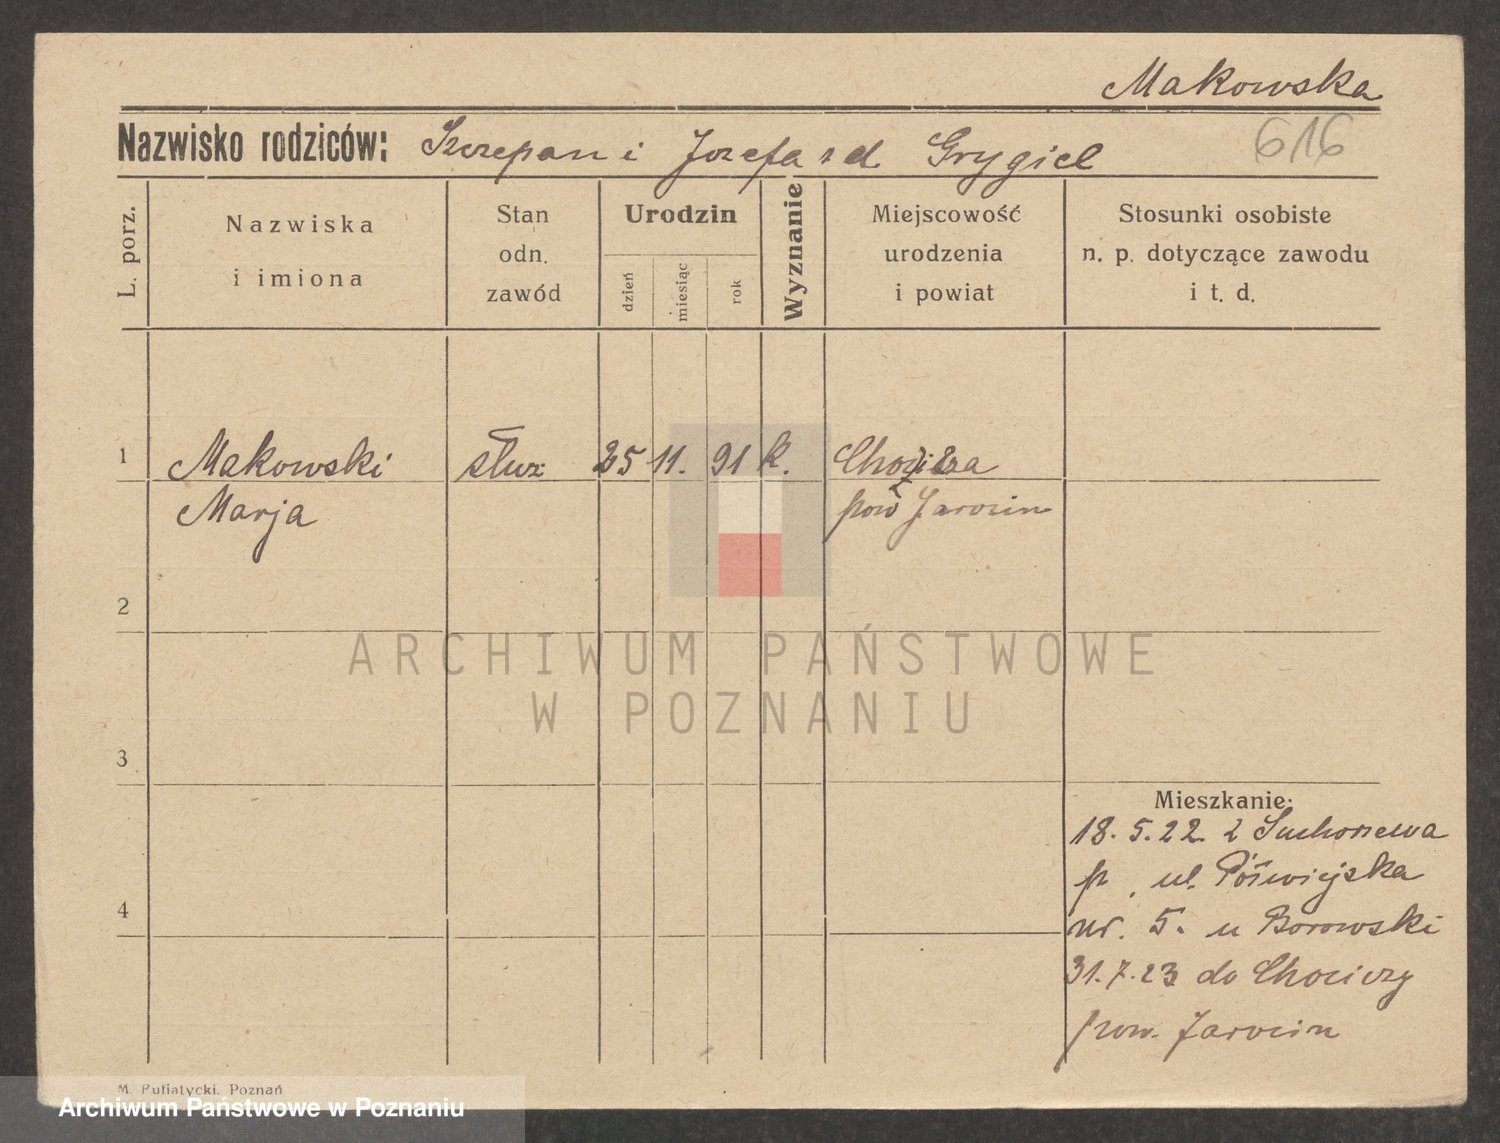 Makowska
616
Nazwisko rodziców: Szczepan i Jozefa z d. Grygiel
L. porz.
Nazwiska i imiona
Stan odn. zawód
Urodzin
dzień
miesiąc
rok
Wyznanie
Miejscowość urodzenia i powiat
Stosunki osobiste n. p. dotyczące zawodu i t. d.
1 Makowski służ. 25 11. 91 k.
Marja pow Jarocin
2
ARCHIWUM PAŃSTWOWE
W POZNANIU
3
Mieszkanie:
18. 5. 22 z Suchorzewa
p. ul. Półwiejska
nr. 5. u Borowski
4
31.7.23 do Chociczy
pow. Jarocin
M. Putiatycki, Poznań
Archiwum Państwowe w Poznaniu